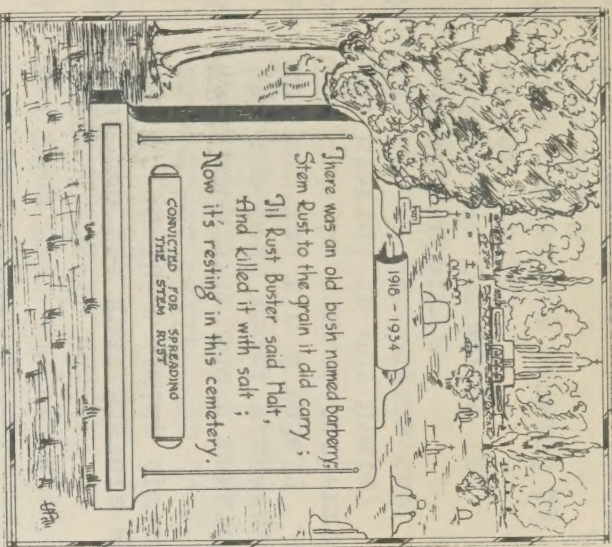 1918 - 1934
There was an old bush named Barberry;
Stem Rust to the grain it did carry;
Til Rust Buster said Halt,
And killed it with salt;
Now it's resting in this cemetery.
CONVICTED FOR SPREADING
THE STEM RUST